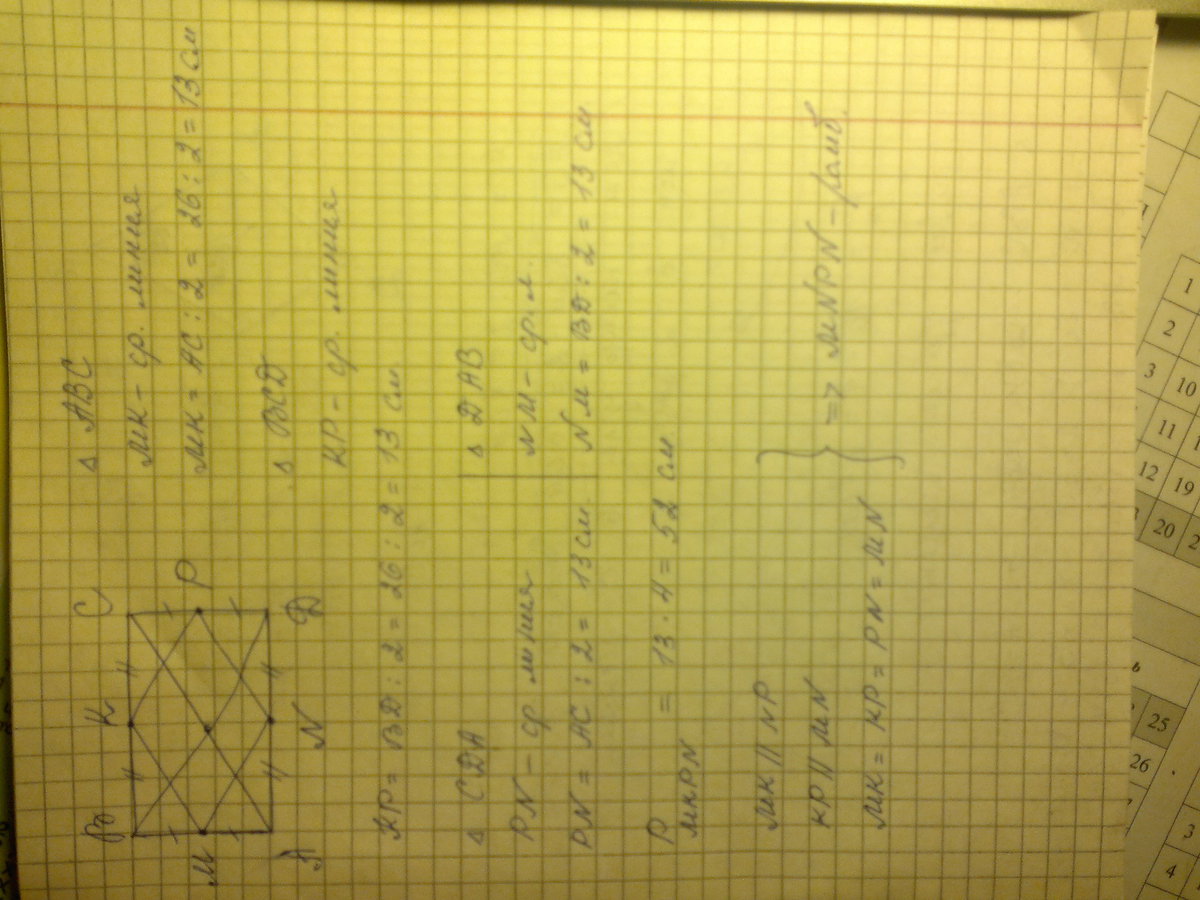 Δ ABC
MK - ср. линия
MK = AC : 2 = 26 : 2 = 13 см
Δ BCD
KP - ср. линия
B K C
M P
A N D
KP = BD : 2 = 26 : 2 = 13 см
Δ CDA
PN - ср линия
PN = AC : 2 = 13 см
Δ DAB
NM - ср. л.
NM = BD : 2 = 13 см
P MKPN = 13 · 4 = 52 см
MK || NP
KP || MN
MK = KP = PN = MN
=> MNPN - ромб.
1
2
3 10
11
12 19
20 2
25
26
3
4